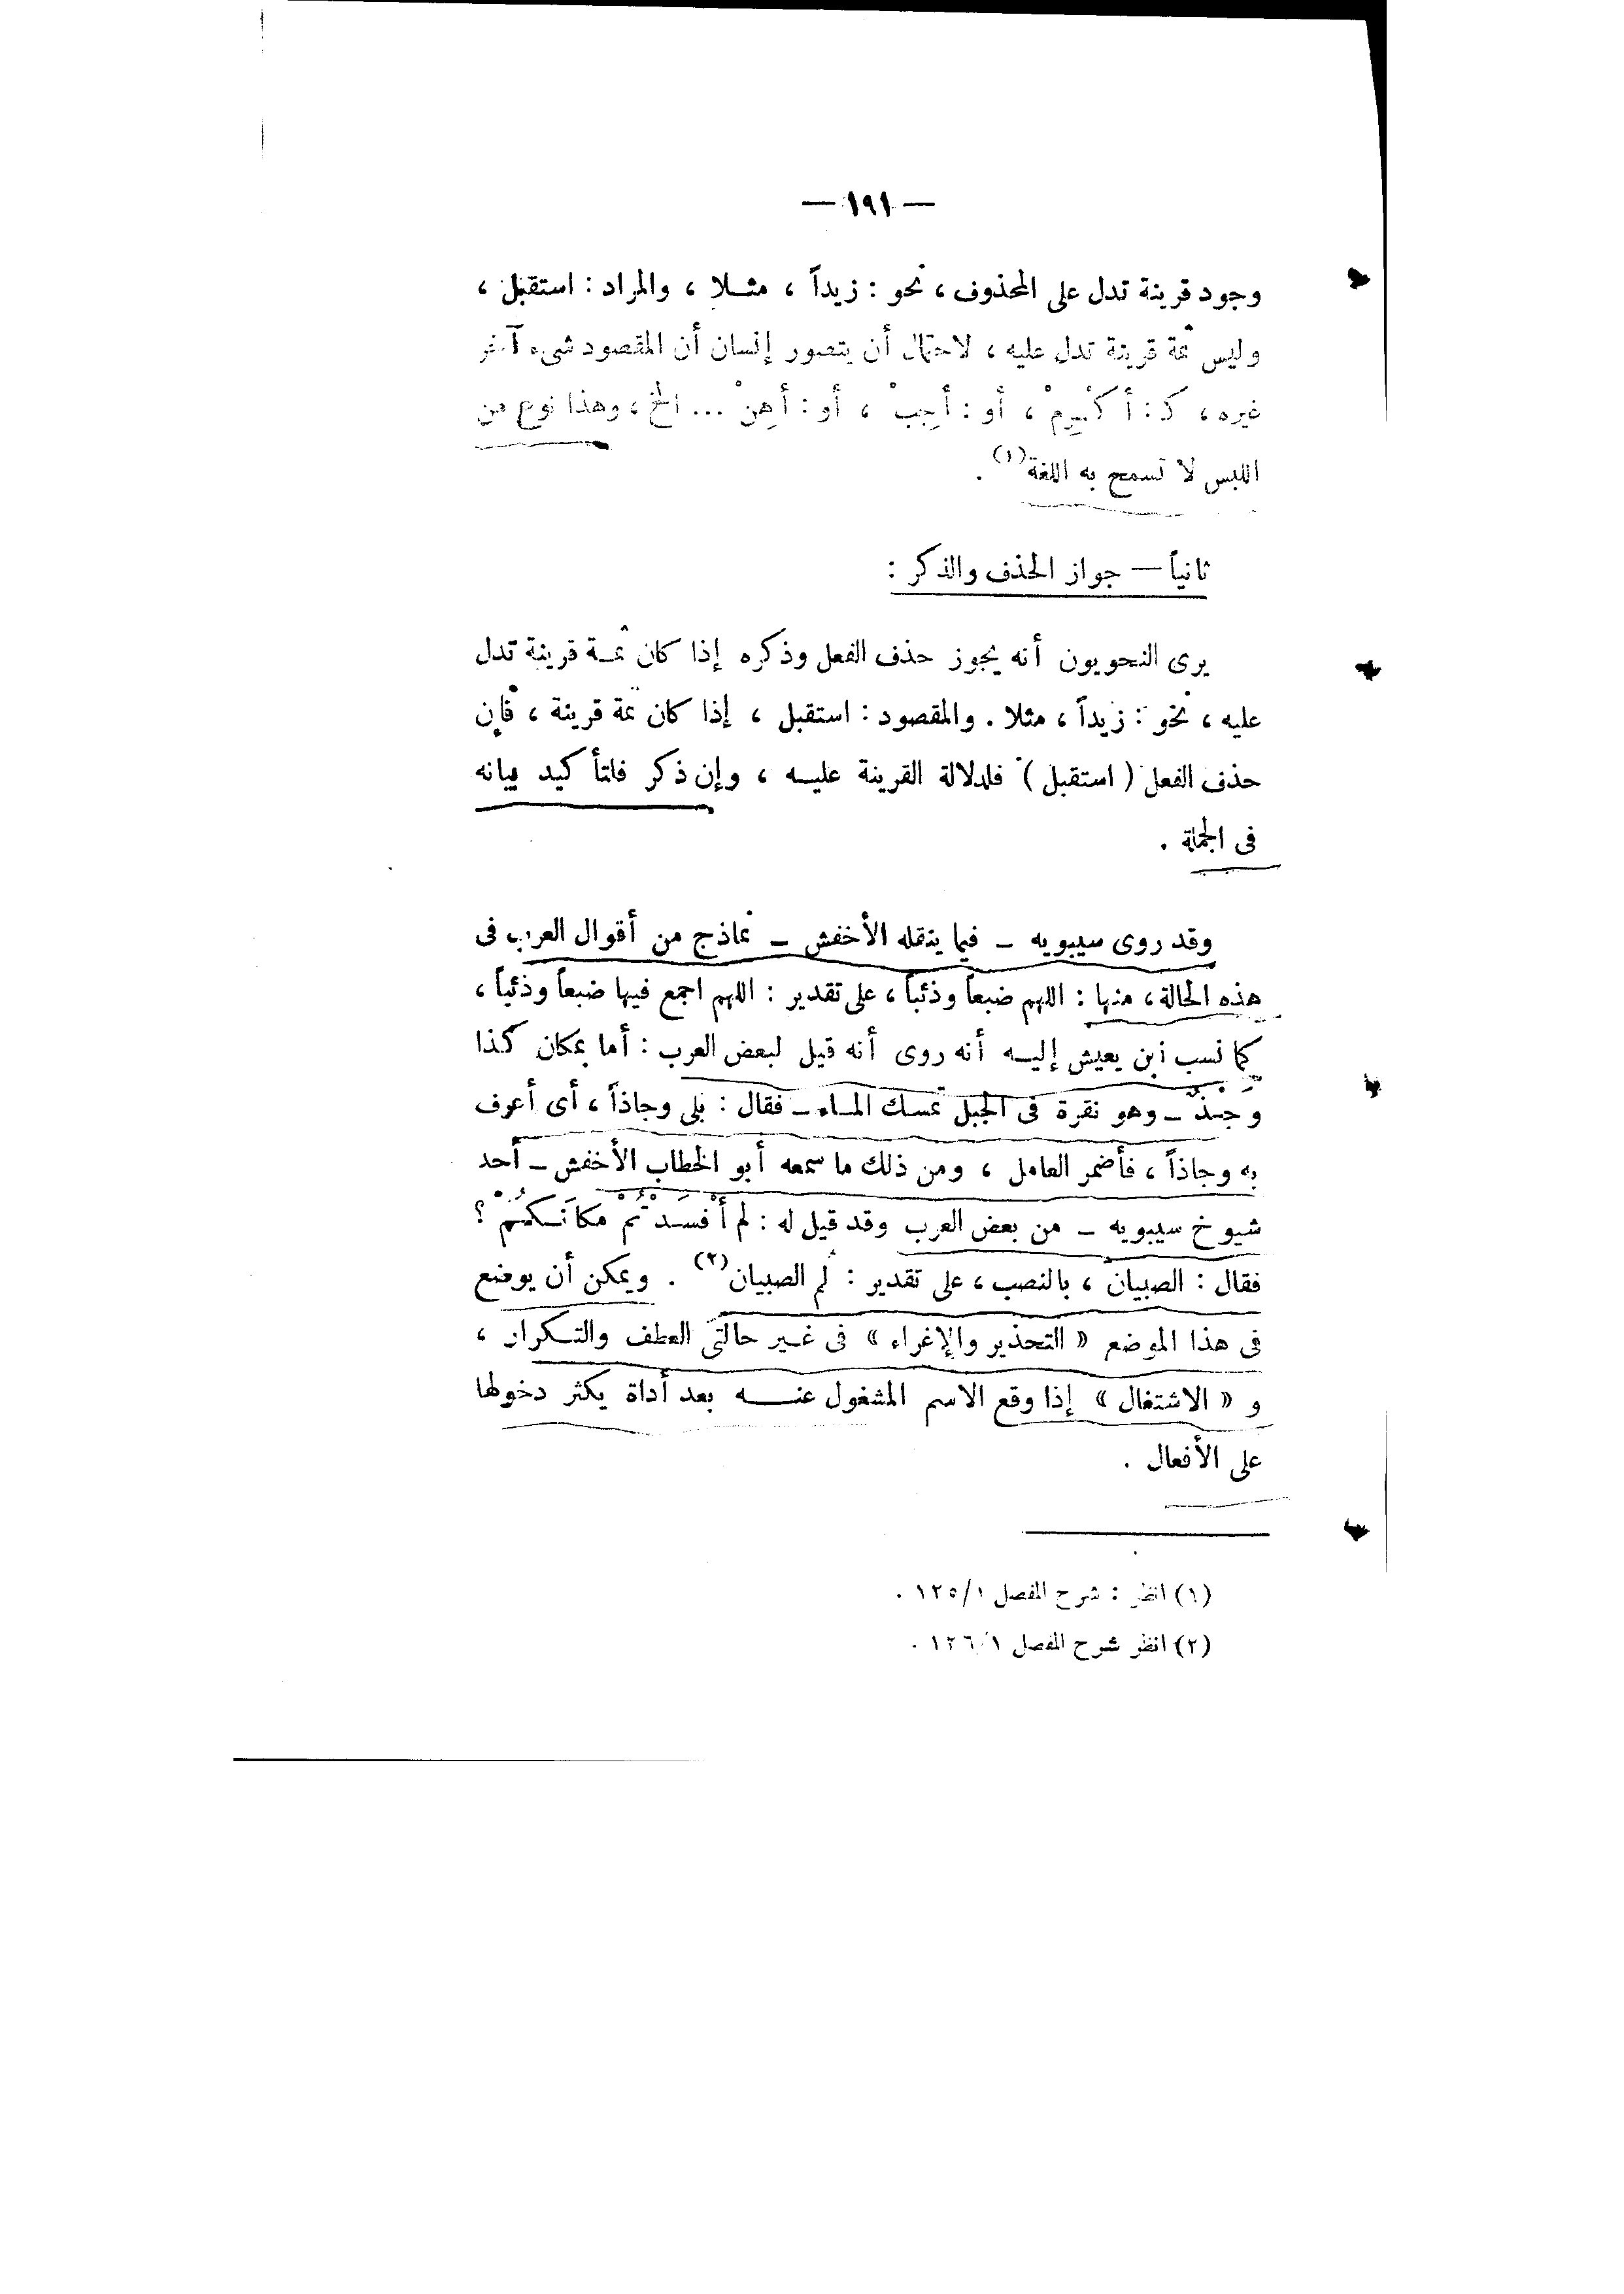 — ١٩١ —
وجود قرينة تدل على المحذوف ، نحو : زيداً ، مثلا ، والمراد : استقبل ،
وليس ثمة قرينة تدل عليه ، لاحتمال أن يتصور إنسان أن المقصود شىء آخر
غيره ، كـ : أكْرِمْ ، أو : أجِبْ ، أو : أهِنْ ... الخ ، وهذا نوع من
اللبس لا تسمح به اللغة(١) .
ثانياً — جواز الحذف والذكر :
يرى النحويون أنه يجوز حذف الفعل وذكره إذا كان ثمة قرينة تدل
عليه ، نحو : زيداً ، مثلا . والمقصود : استقبل ، إذا كان ثمة قرينة ، فإن
حذف الفعل ( استقبل ) فلدلالة القرينة عليه ، وإن ذكر فلتأكيد بيانه
فى الجملة .
وقد روى سيبويه – فيما ينقله الأخفش – نماذج من أقوال العرب فى
هذه الحالة ، منها : اللهم ضبعاً وذئباً ، على تقدير : اللهم اجمع فيها ضبعاً وذئباً ،
كما نسب ابن يعيش إليه أنه روى أنه قيل لبعض العرب : أما بمكان كذا
وَجْذٌ – وهو نقرة فى الجبل تمسك الماء – فقال : بلى وجاذاً ، أى أعرف
به وجاذاً ، فأضمر العامل ، ومن ذلك ما سمعه أبو الخطاب الأخفش – أحد
شيوخ سيبويه – من بعض العرب وقد قيل له : لم أَفْسَدْتُمْ مكانَكُمْ ؟
فقال : الصبيانَ ، بالنصب ، على تقدير : لُم الصبيان(٢) . ويمكن أن يوضع
فى هذا الموضع « التحذير والإغراء » فى غير حالتى العطف والتكرار ،
و « الاشتغال » إذا وقع الاسم المشغول عنه بعد أداة يكثر دخولها
على الأفعال .
(١) انظر : شرح المفصل ١٢٥/١ .
(٢) انظر شرح المفصل ١٢٦/١ .